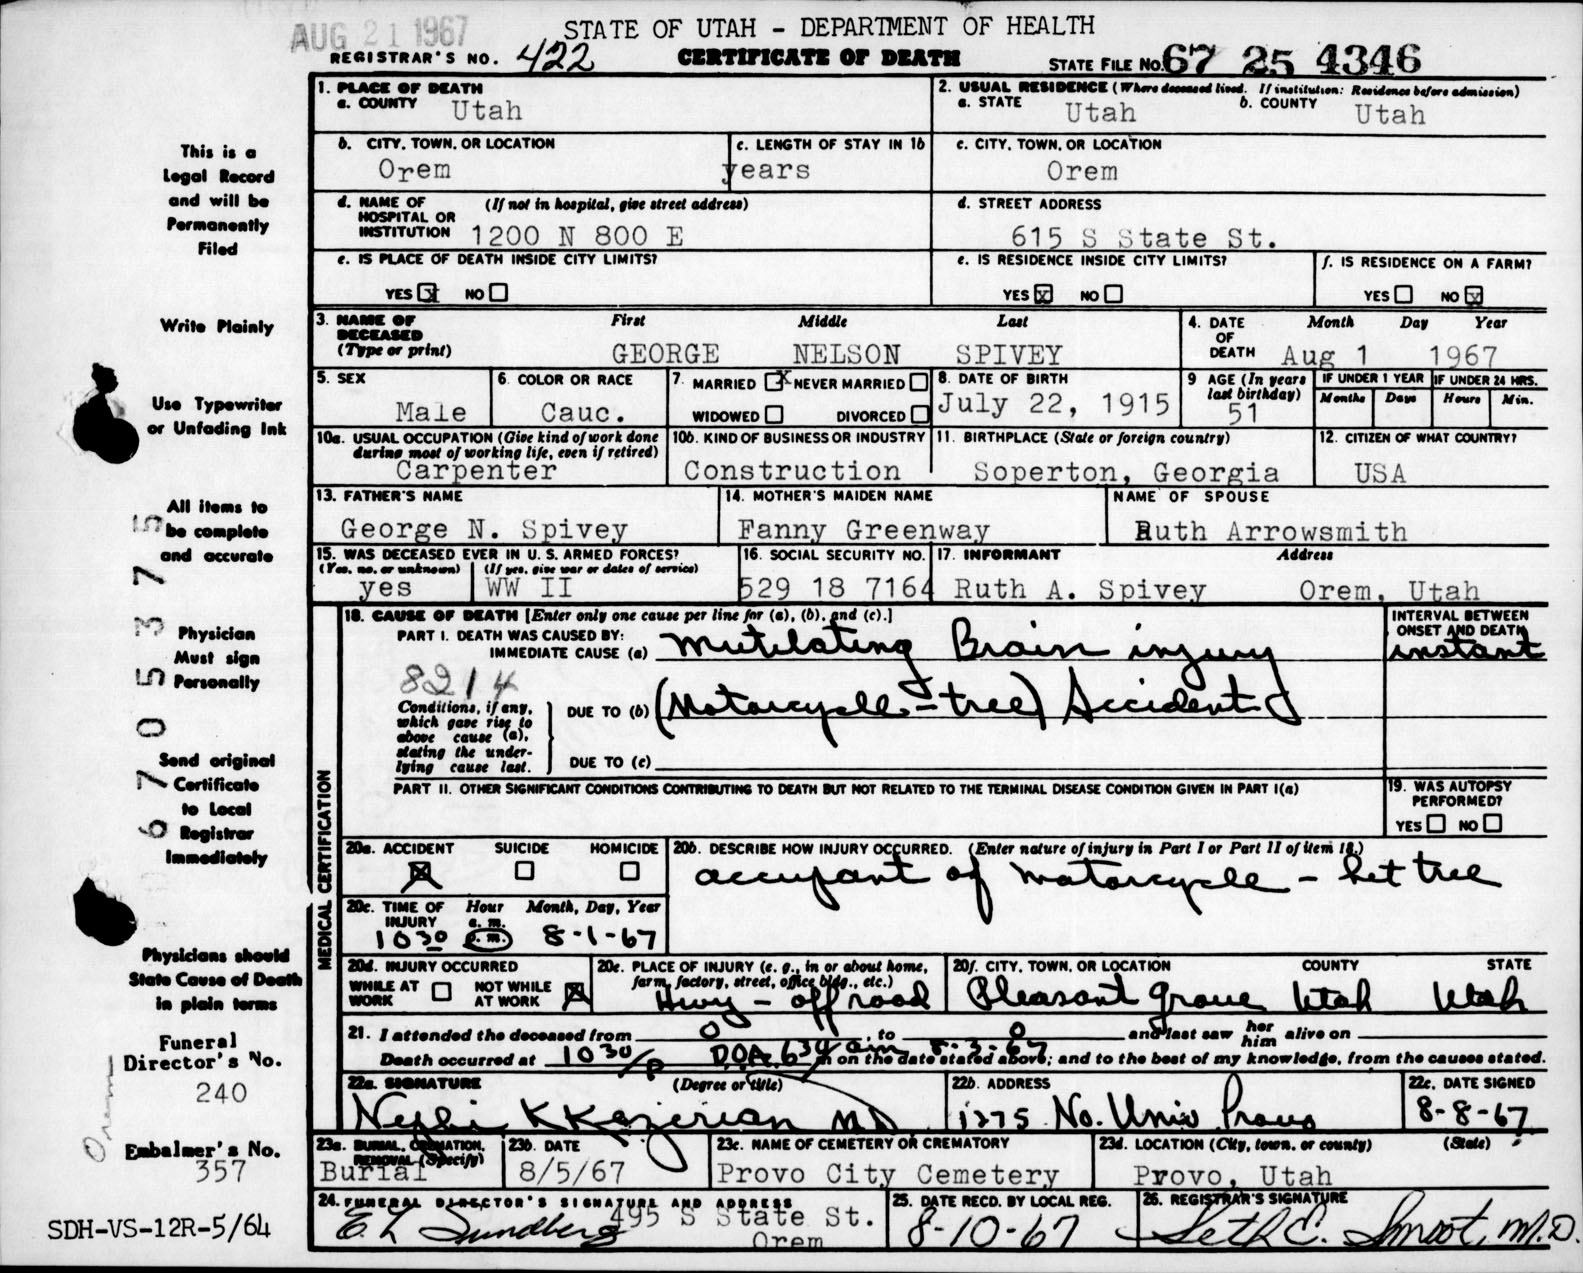 AUG 21 1967
STATE OF UTAH - DEPARTMENT OF HEALTH
REGISTRAR'S NO. 422 CERTIFICATE OF DEATH STATE FILE NO. 67 25 4346
1. PLACE OF DEATH
a. COUNTY Utah
2. USUAL RESIDENCE (Where deceased lived. If institution: Residence before admission)
a. STATE Utah b. COUNTY Utah
b. CITY, TOWN, OR LOCATION Orem
c. LENGTH OF STAY IN 1b years
c. CITY, TOWN, OR LOCATION Orem
d. NAME OF HOSPITAL OR INSTITUTION (If not in hospital, give street address)
1200 N 800 E
d. STREET ADDRESS
615 S State St.
e. IS PLACE OF DEATH INSIDE CITY LIMITS?
YES x NO
e. IS RESIDENCE INSIDE CITY LIMITS?
YES x NO
f. IS RESIDENCE ON A FARM?
YES NO x
3. NAME OF DECEASED (Type or print)
First Middle Last
GEORGE NELSON SPIVEY
4. DATE OF DEATH Month Day Year
Aug 1 1967
5. SEX Male
6. COLOR OR RACE Cauc.
7. MARRIED x NEVER MARRIED
WIDOWED DIVORCED
8. DATE OF BIRTH July 22, 1915
9 AGE (In years last birthday) 51
IF UNDER 1 YEAR Months Days
IF UNDER 24 HRS. Hours Min.
10a. USUAL OCCUPATION (Give kind of work done during most of working life, even if retired)
Carpenter
10b. KIND OF BUSINESS OR INDUSTRY
Construction
11. BIRTHPLACE (State or foreign country)
Soperton, Georgia
12. CITIZEN OF WHAT COUNTRY?
USA
13. FATHER'S NAME
George N. Spivey
14. MOTHER'S MAIDEN NAME
Fanny Greenway
NAME OF SPOUSE
Ruth Arrowsmith
15. WAS DECEASED EVER IN U. S. ARMED FORCES?
(Yes, no, or unknown) (If yes, give war or dates of service)
yes WW II
16. SOCIAL SECURITY NO.
529 18 7164
17. INFORMANT Address
Ruth A. Spivey Orem, Utah
18. CAUSE OF DEATH [Enter only one cause per line for (a), (b), and (c).]
PART I. DEATH WAS CAUSED BY:
IMMEDIATE CAUSE (a) Mutilating Brain injury
INTERVAL BETWEEN ONSET AND DEATH
instant
8214
Conditions, if any, which gave rise to above cause (a), stating the underlying cause last.
DUE TO (b) (Motorcycle - tree) Accident
DUE TO (c)
PART II. OTHER SIGNIFICANT CONDITIONS CONTRIBUTING TO DEATH BUT NOT RELATED TO THE TERMINAL DISEASE CONDITION GIVEN IN PART I(a)
19. WAS AUTOPSY PERFORMED?
YES NO
MEDICAL CERTIFICATION
20a. ACCIDENT SUICIDE HOMICIDE
X
20b. DESCRIBE HOW INJURY OCCURRED. (Enter nature of injury in Part I or Part II of item 18.)
occupant of motorcycle - hit tree
20c. TIME OF INJURY Hour a. m. p. m. Month, Day, Year
1030 8-1-67
20d. INJURY OCCURRED
WHILE AT WORK NOT WHILE AT WORK X
20e. PLACE OF INJURY (e. g., in or about home, farm, factory, street, office bldg., etc.)
Hwy - off road
20f. CITY, TOWN, OR LOCATION COUNTY STATE
Pleasant Grove Utah Utah
21. I attended the deceased from 0, to 0 and last saw her him alive on
Death occurred at 1030/p D.O.A. 634/am 8-3-67 m on the date stated above; and to the best of my knowledge, from the causes stated.
22a. SIGNATURE (Degree or title)
22b. ADDRESS
1275 No. Univ Provo
22c. DATE SIGNED
8-8-67
23a. BURIAL, CREMATION, REMOVAL (Specify)
Burial
23b. DATE
8/5/67
23c. NAME OF CEMETERY OR CREMATORY
Provo City Cemetery
23d. LOCATION (City, town, or county) (State)
Provo, Utah
24. FUNERAL DIRECTOR'S SIGNATURE AND ADDRESS
E. L Sundberg 495 S State St.
Orem
25. DATE RECD. BY LOCAL REG.
8-10-67
26. REGISTRAR'S SIGNATURE
Seth E. Smoot, M.D.
This is a
Legal Record
and will be
Permanently
Filed
Write Plainly
Use Typewriter
or Unfading Ink
All items to
be complete
and accurate
Physician
Must sign
Personally
Send original
Certificate
to Local
Registrar
Immediately
67 0 5 3 7 5
Physicians should
State Cause of Death
in plain terms
Funeral
Director's No.
240
Orem
Embalmer's No.
357
SDH-VS-12R-5/64